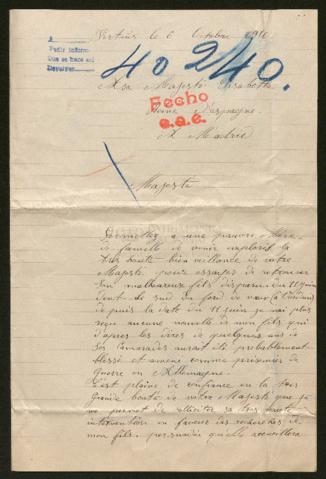 Vertus le 6 Octobre 1916.
Pedir informe
Que se hace así
40240.
A sa Majesté
Reine d'Espagne.
Fecho
e.a.e.
A Madrid
Majesté
Permettez a une pauvre Mère
de famille de venir implorer la
très haute bienveillance de votre
Majesté pour essayer de retrouver
son malheureux fils disparu du 11 juin
au sud du fort de Vaux
depuis la date du 11 juin je n'ai plus
reçu aucune nouvelle de mon fils qui
d'après les dires de quelques uns de
ses camarades aurait été probablement
blessé et amené comme prisonnier de
Guerre en Allemagne.
C'est pleine de confiance en la très
grande bonté de votre Majesté que je
me permet de solliciter sa très haute
intervention en faveur des recherches de
mon fils, persuadée qu'elle accueillera